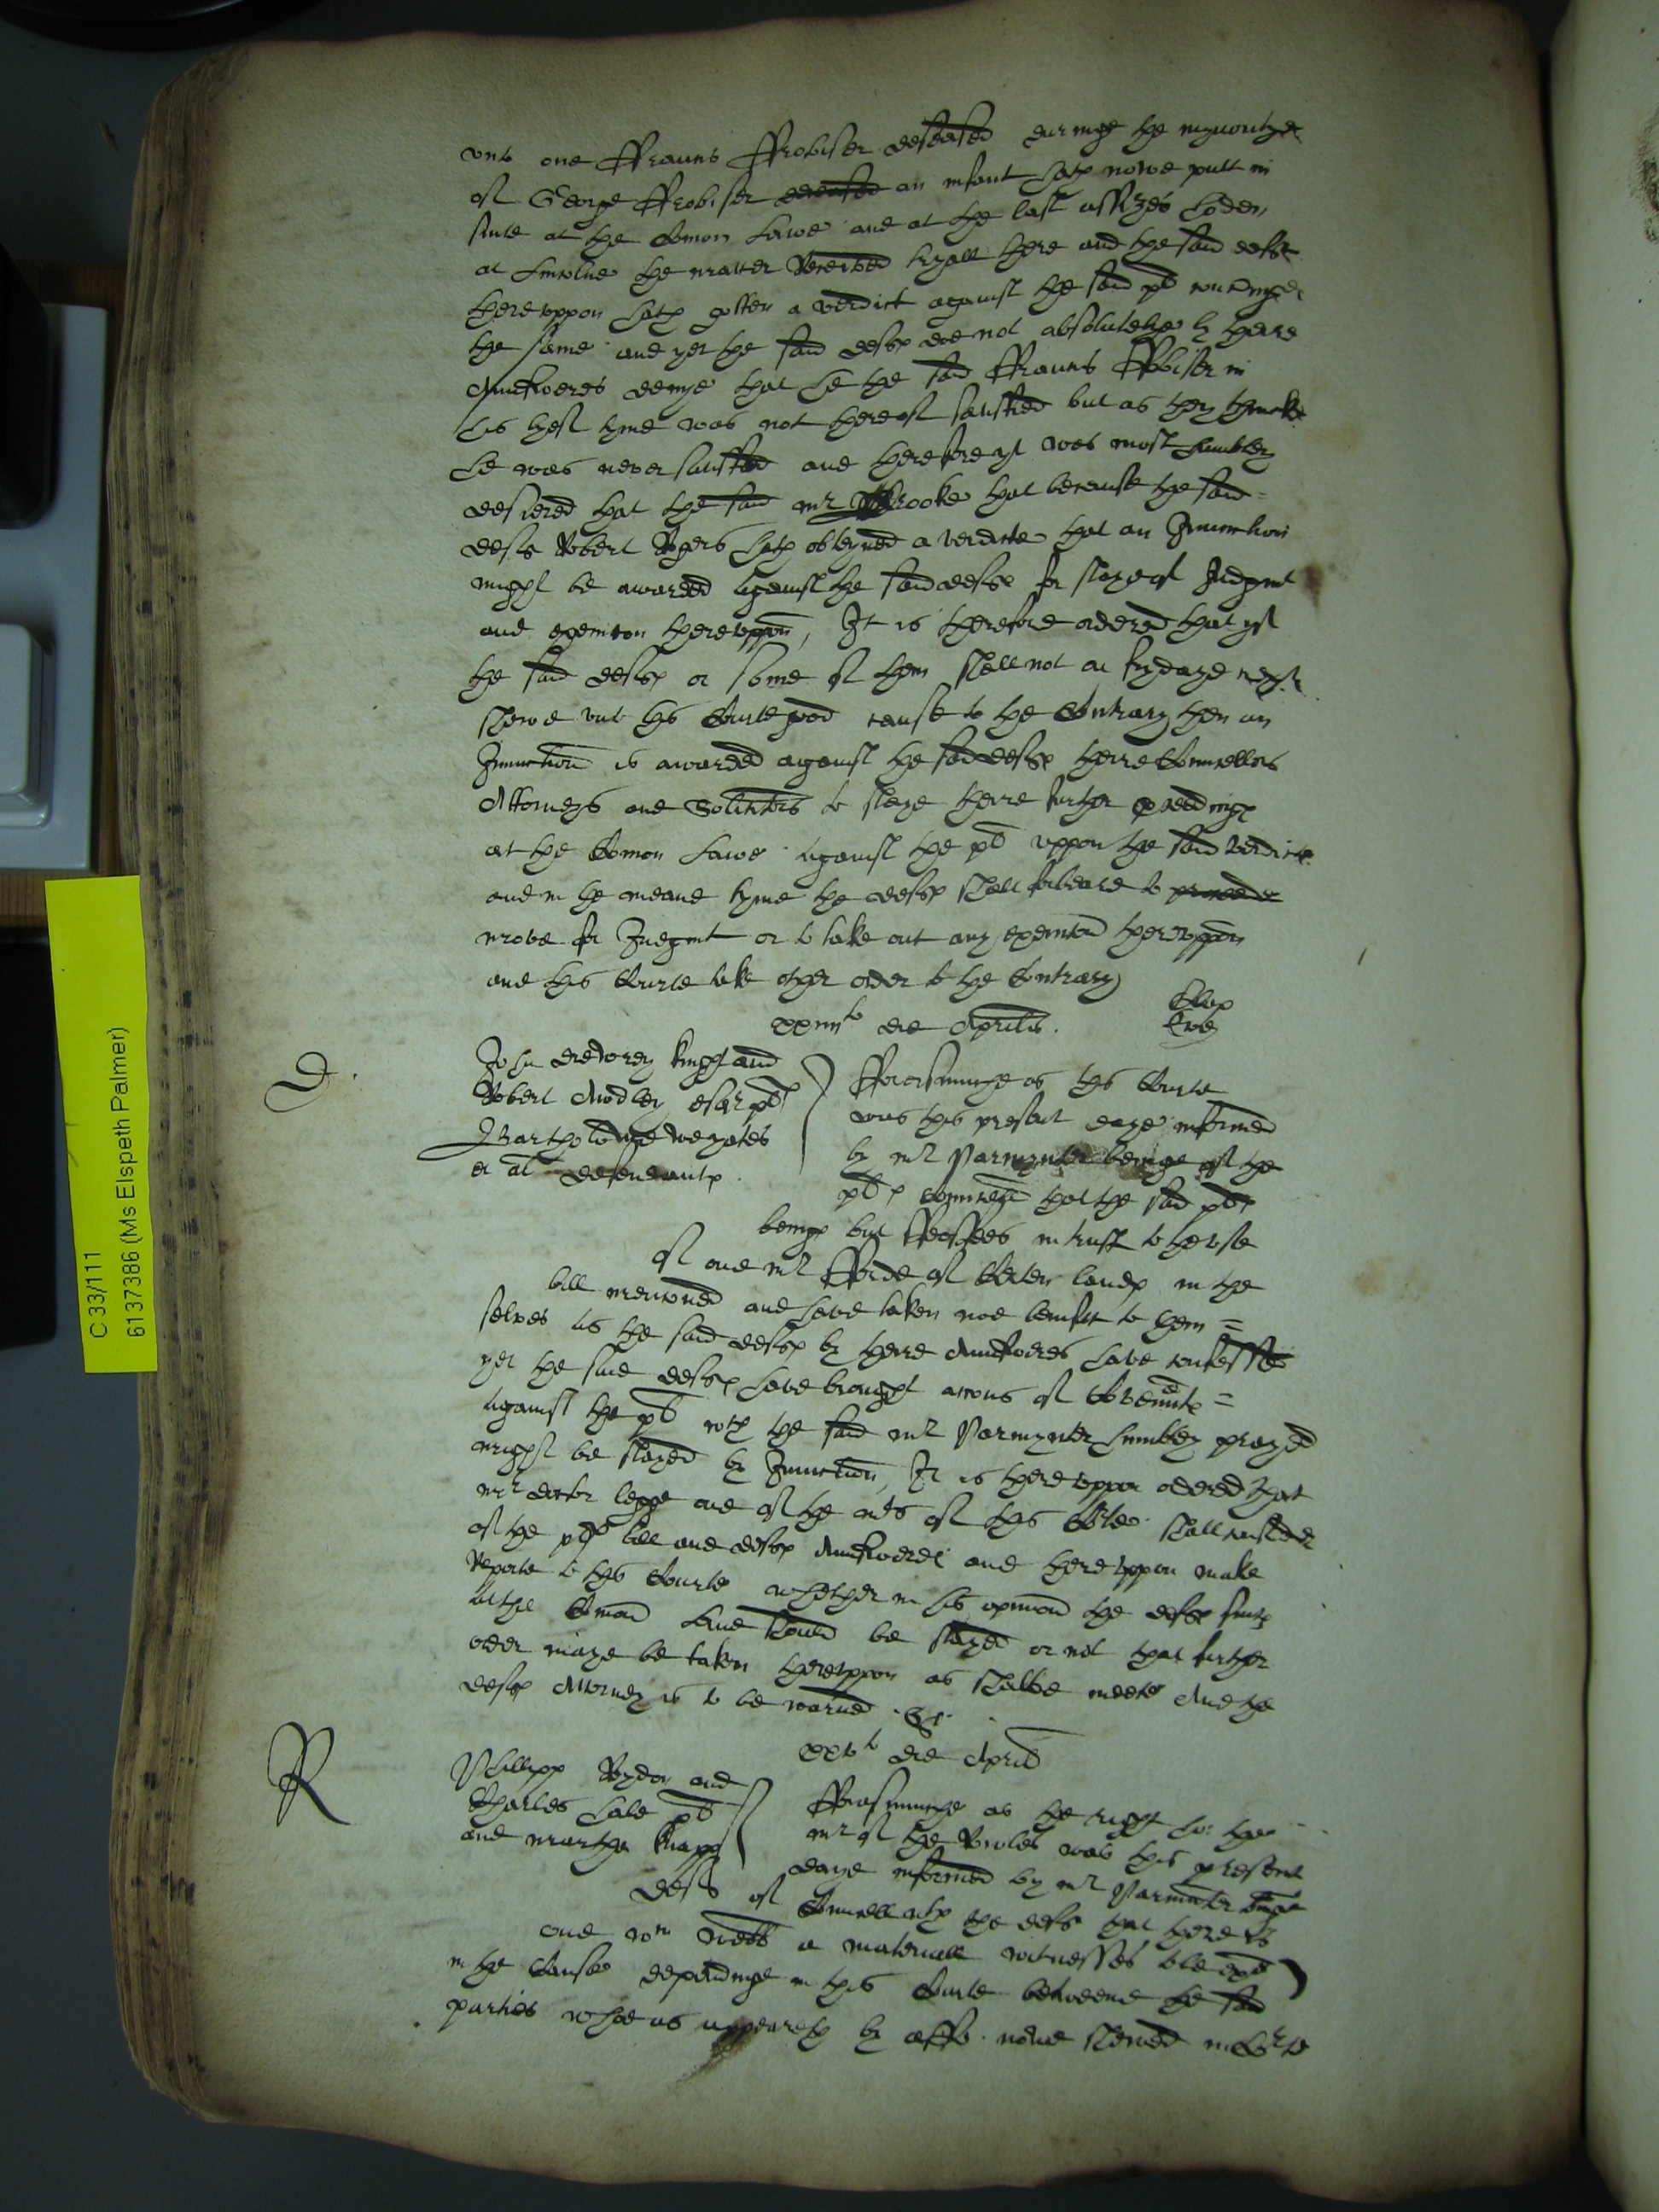 unto one Ffrauncis Ffrobiser deceased duringe the mynoritye
of George Ffrobiser deceased an infant hath nowe putt in
suite at the Comon Lawe and at the last assizes holden
at Lincolne the matter Received tryall there and the said deft
thereuppon hath gotten a verdict against the said plt
the same and yet the said defts doe not absolutelye by theire
Aunsweres denye that he the said Ffrauncis Ffrobiser in
his lyef tyme was not thereof satisfied but as they thincke
he was never satisfied and therefore yt was most humbly
desiered that the said mr Brooke that because the said =
deft Robert Rogers hath obteyned a verdicte that an Iniunction
might be awarded against the said defts for staye of Iudgmt
and execucon thereuppon, It is therefore ordered that yf
the said defts or some of them shall not on frydaye next
shewe unto this Courte good cause to the Contrary then an
Iniunction is awarded against the said defts theire Counsellors
Attorneys and Solicitors to staye theire further proceedings
at the Comon Lawe against the plt uppon the said verdict
and in the meane tyme the defts shall forbeare to proceede
move for Iudgmt or to take out any execucon thereuppon
and this Courte take other order to the Contrary
xxiiiito die Aprilis.
D
John knight and
Robert Audley esqr plts
Bartholomewe
et al defendants
Fforasmuche as this Courte
was this present daye informed
by mr Parmynter beinge of the
plts Councell that the said plts
beinge but ffeoffees in trust to the use
of one mr Fforde of Certen lands in the
bill mencioned and have taken noe benefitt to them =
selves as the said defts by theire Aunsweres have confessed
yet the said defts have brought accons of Covennts =
against the plts wch the said mr Parmynter humbly prayed
might be stayed by Iniunction, It is thereuppon ordered that
mr doctor legge one of the mrs of this Courte shall consider
of the plts bill and defts Aunsweres and thereuppon make
Reporte to this Courte whether in his opinion the defts suits
at the Comon Lawe should be stayed or not that further
order maye be taken thereuppon as shalbe meete And the
defts Attorney is to be warned &c.
xxvto die Aprilis
R
Phillipp Rydon and
Charles plts
and martha Knapp
deft
Fforasmuche as the right ho: the
mr of the Rowles was this present
daye informed by mr Parmiter beinge
of Councell wth the deft that there is
one Wm Webb a materiall witnesses to be exd
in the Cause dependinge in this Courte betweene the said
parties whoe as appeareth by affid. nowe shewed in Corte
C 33/111
6137386 (Ms Elspeth Palmer)